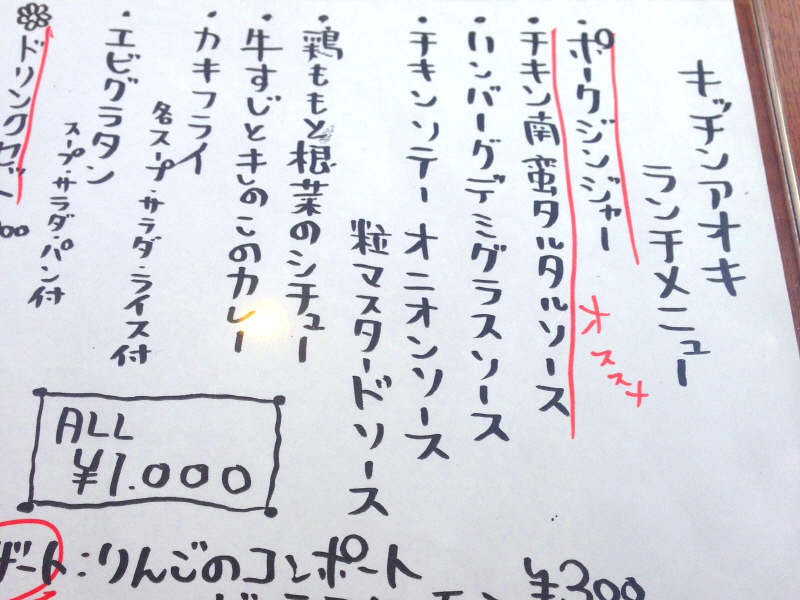 キッチンアオキ
ランチメニュー
・ポークジンジャー
・チキン南蛮タルタルソース
オススメ
・ハンバーグデミグラスソース
・チキンソテー オニオンソース
粒マスタードソース
・鶏ももと根菜のシチュー
・牛すじときのこのカレー
・カキフライ
各スープ・サラダ・ライス付
・エビグラタン
スープ・サラダ・パン付
ドリンクセット
ALL
¥1.000
ザート:りんごのコンポート
¥300